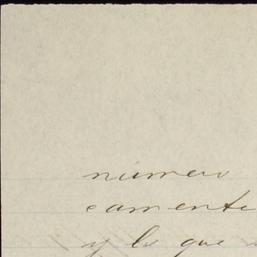 número
camente
y lo que